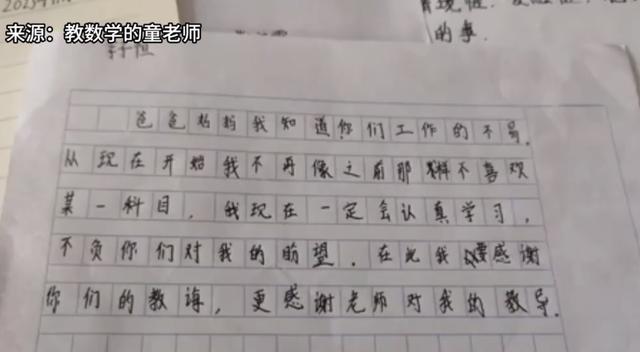 来源：教数学的童老师
的事.
爸爸妈妈我知道你们工作的不易.
从现在开始我不再像之前那样不喜欢
某一科目，我现在一定会认真学习，
不负你们对我的盼望．在此我要感谢
你们的教诲，更感谢老师对我的教导.